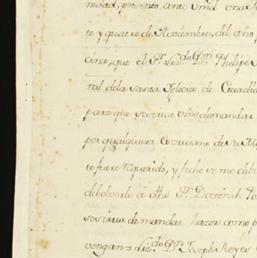 nidad, presento ante Vmd una
te y quatro de Noviembre, del año, p
cinco, que el Sr. Liz.do Dn. Phelipe
ral dela Santa Iglesia de
para que se sirva Vmd demandar
por qualquiera escrivano de su M
to fuere requerido, y fecho se me deb
debolverlo â dho Sr. Doctoral
se sirva de mandar hazer como p
vengan = Liz.do Dn. Joseph Reyes